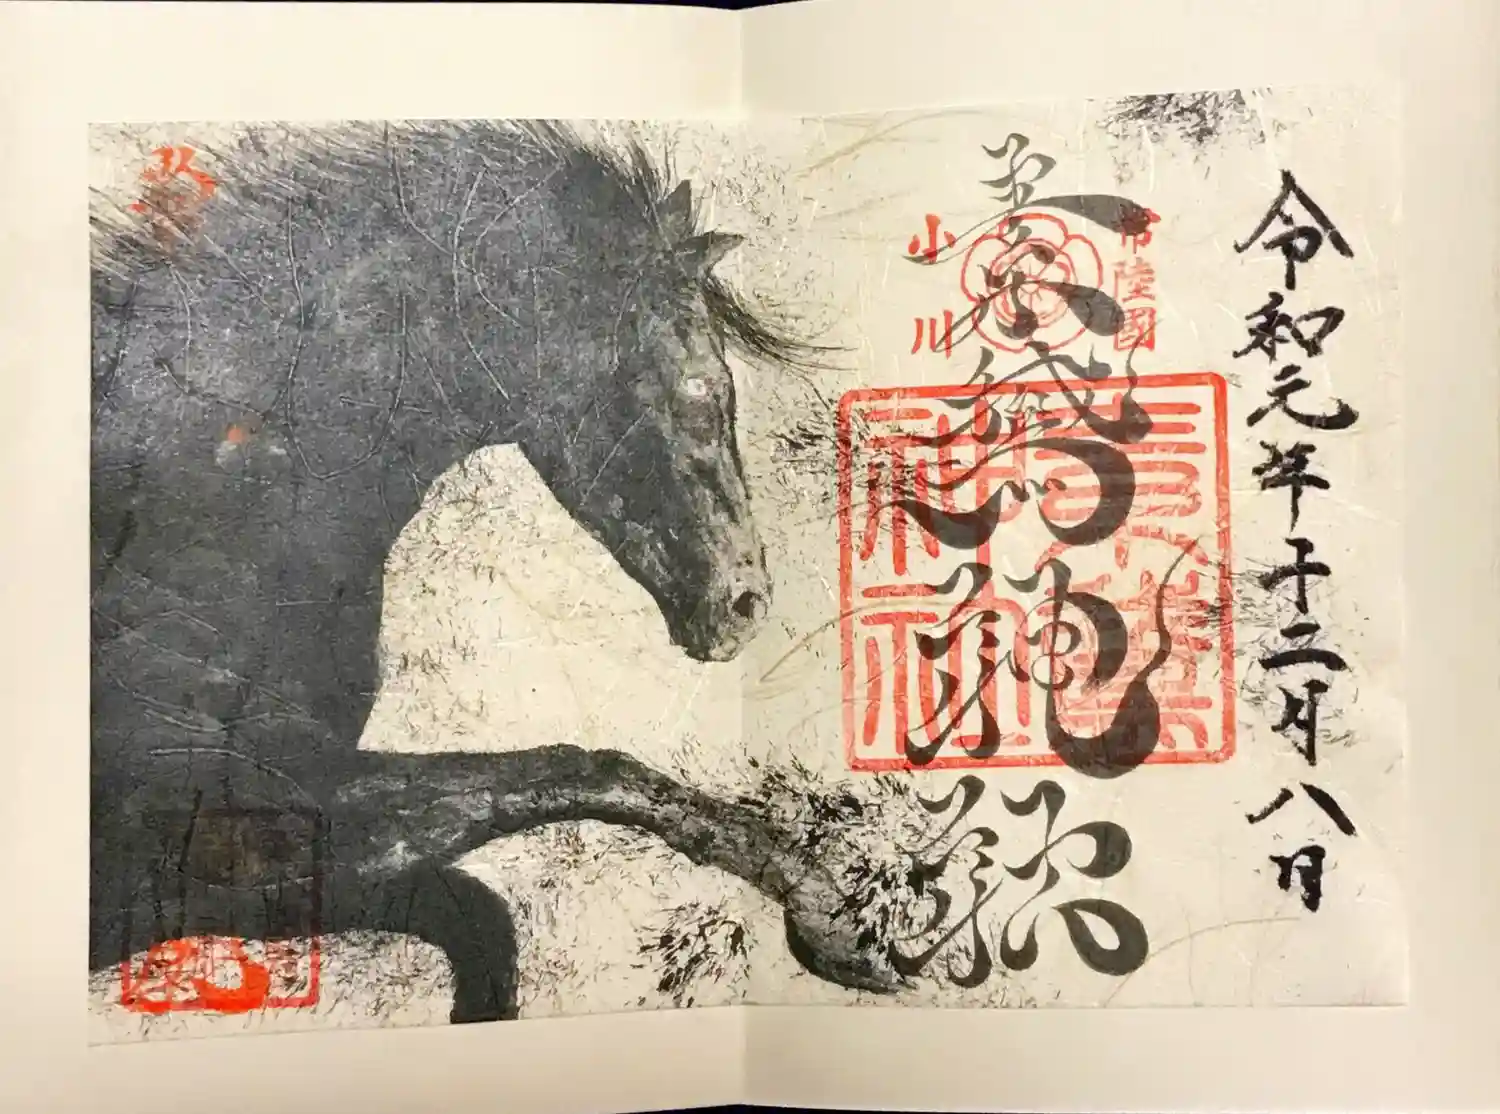 令和元年十二月八日
常陸國
小川
素鵞神社